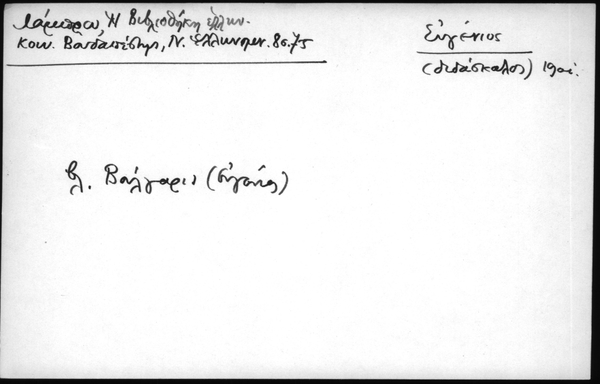 Λάμπρου, Ἡ Βιβλιοθήκη ἑλλην.
κοιν. Βουδαπέστης, Ν. Ἑλληνομν. 8ος. 75
Εὐγένιος
(διδάσκαλος)
βλ. Βούλγαρις (Εὐγένιος)